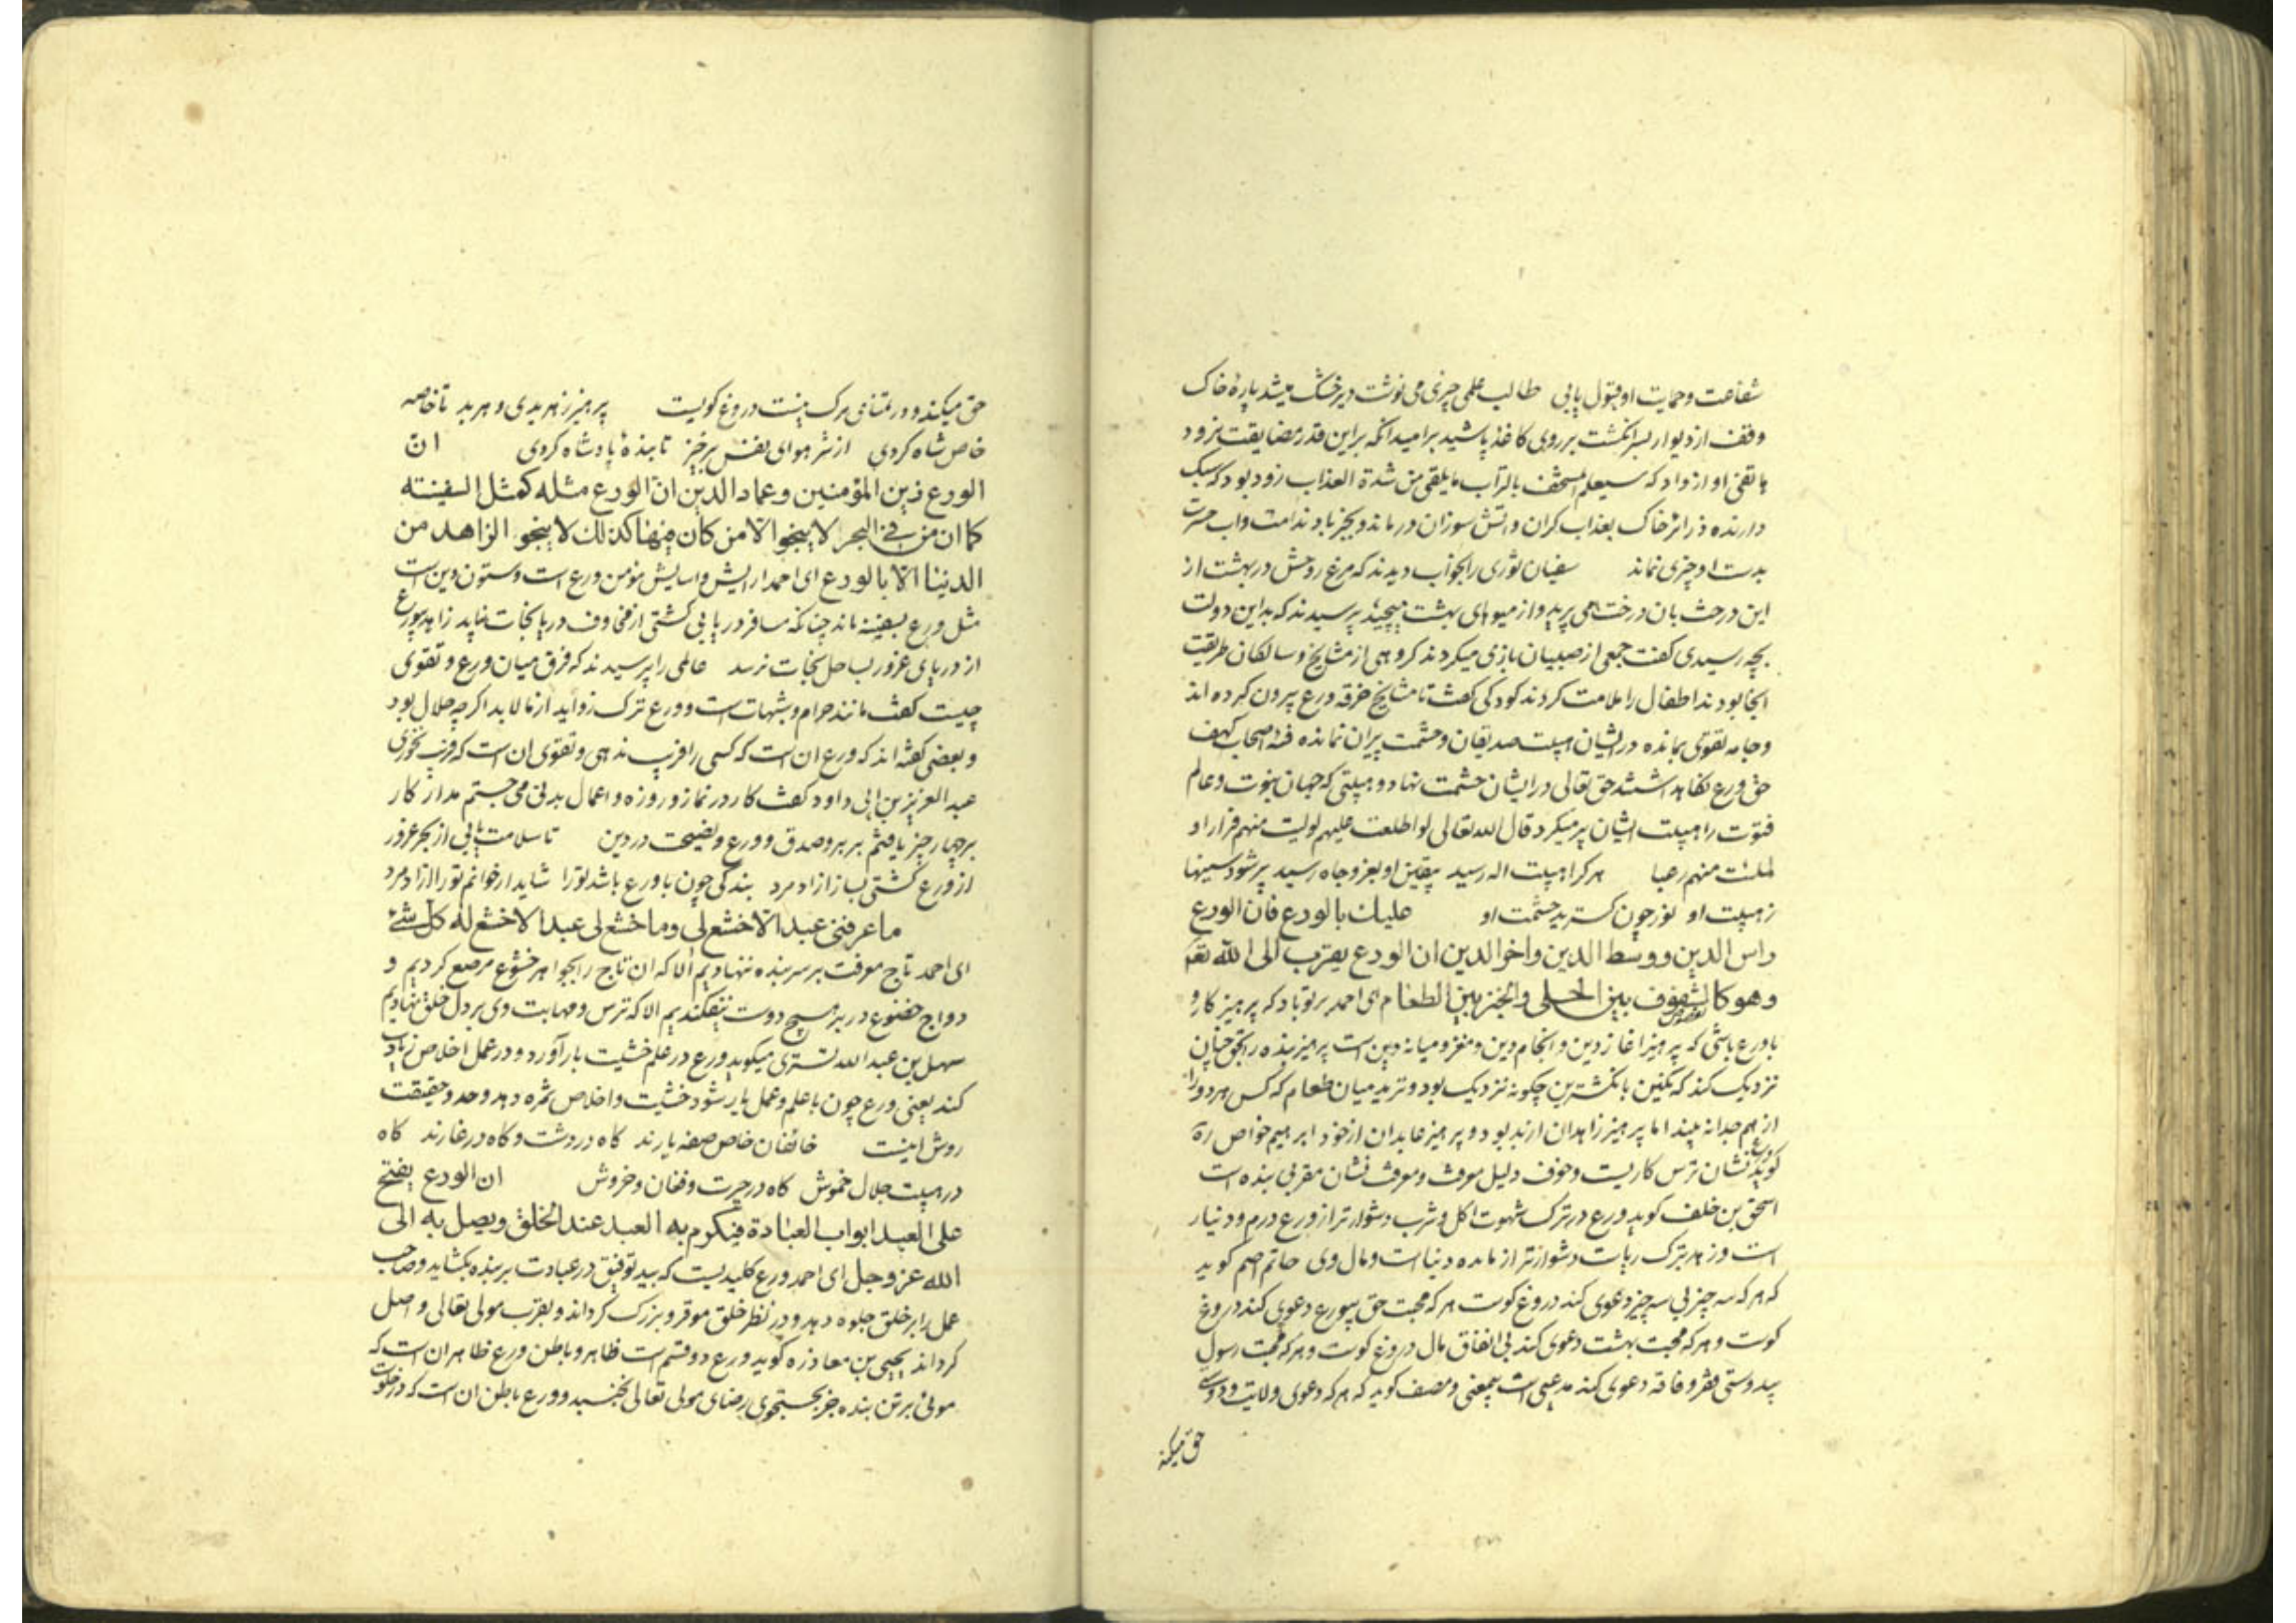 شفاعت و حمایت او قبول یابی طالب علمی چیزی می نوشت دیر خشک میشد پارهٔ خاک
وقف از دیوار بسر انگشت بر روی کاغذ پاشید برامید انکه براین قدر مضایقت نرود
هاتفی او از داد که سیعلم المستخف بالتراب مایلقی من شدة العذاب زود بود که سبک
دارنده ذرا تر خاک بعذاب کران و اتش سوزان درماند و بجز باد ندامت و اب حسرت
بدست او چیزی نماند سفیان ثوری را بخواب دیدند که مرغ روحش در بهشت از
این درخت بان درخت می پرید و از میوهای بهشت میچید پرسیدند که بداین دولت
بچه رسیدی کفت جمعی از صبیان بازی میکردند کروهی از مشایخ و سالکان طریقت
انجا بودند اطفال را ملامت کردند کودکی کفت تا مشایخ خرقه ورع بیرون کرده اند
و جامه تقوی بمانده در ایشان هیبت صدیقان و حشمت پیران نمانده فتیه اصحاب کهف
حق ورع نکاه داشتند حق تعالی در ایشان حشمت نهاد و هیبتی که جهان نبوت و عالم
فتوت را هیبت ایشان پر میکرد قال الله تعالی لو اطلعت علیهم لولیت منهم فرارا و
لملئت منهم رعبا هر کرا هیبت اله رسید بیقین او بعز و جاه رسید پر شود سینها
ز هیبت او نور چون کسترید حشمت او علیك بالورع فان الورع
راس الدین و وسط الدین و اخر الدین ان الورع یقرب الی الله تعا
و هو کالشفوف بین الحلی و الخبز بین الطعام ای احمد بر تو باد که پرهیزکار و
با ورع باشی که پرهیز اغاز دین و انجام دین و مغز و میانه دین است پرهیز بنده را بحق چنان
نزدیک کند که نکین بانکشترین چکونه نزدیک بود و ترید میان طعام که کس هر دو را
از هم جدا نه بیند اما پرهیز زاهدان از بد بود و پرهیز عابدان از خود ابرهیم خواص ره
کوید ورع نشان ترس کاریست و خوف دلیل معرفت و معرفت نشان مقربی بنده است
اسحق بن خلف کوید ورع در ترک شهوت اکل و شرب دشوار تر از ورع درم و دنیار
است و زهد بترک ریاست دشوار تر از مایده دنیا است و مال وی حاتم اصم کوید
که هر که سه چیز بی سه چیز دعوی کند دروغ کوست هر که محبت حق بیورع دعوی کند دروغ
کوست و هر که محبت بهشت دعوی کند بی انفاق مال دروغ کوست و هر که محبت رسول
بیدوستی فقر و فاقه دعوی کند مدعی است بیمعنی و مصنف کوید که هر که دعوی ولایت و دوستی
حق میکند
حق میکند و در تمنای مرک نیست دروغ کویست پرهیز ز هر بدی و هر بد تا خاصه
خاص شاه کردی از شر هوای نفس برخیز تا بندهٔ پادشاه کردی ان
الورع زین المؤمنین و عماد الدین ان الورع مثله کمثل السفینة
کما ان من فی البحر لا ینجو الا من کان فیها کذلك لا ینجو الزاهد من
الدنیا الا بالورع ای احمد ارایش و اسایش مؤمن ورع است و ستون دین است
مثل ورع بسفینه ماند چنانکه مسافر دریا بی کشتی از مخاوف دریا نجات نیابد زاهد بیورع
از دریای غرور بساحل نجات نرسد عالمی را پرسیدند که فرق میان ورع و تقوی
چیست کفت مانند حرام و شبهات است و ورع ترک زواید از مالابد اکرچه حلال بود
و بعضی کفته اند که ورع ان است که کسی را فریب ندهی و تقوی ان است که فریب نخوری
عبد العزیز بن ابی داود کفت کار در نماز و روزه و اعمال بدنی می جستم مدار کار
بر چهار چیز یافتم بر بر و صدق و ورع و نصیحت در دین تا سلامت یابی از بحر غرور
از ورع کشتی بساز ازاد مرد بندکی چون با ورع باشد تو را شاید ار خوانم تو را ازاد مرد
ما عرفنی عبد الا خشع لی و ما خشع لی عبد الا خشع له کل شیء
ای احمد تاج معرفت بر سر بنده ننهادیم الا که ان تاج را بجواهر خشوع مرصع کردیم و
دواج خضوع در بر هیچ دوست نیفکندیم الا که ترس و مهابت وی بر دل خلق نهادیم
سهل بن عبد الله تستری میکوید ورع در علم خشیت بار آورد و در عمل اخلاص زیادت
کند یعنی ورع چون با علم و عمل یار شود خشیت و اخلاص ثمره دهد وحد و حقیقت
روش اینست خائفان خاص صفه یارند کاه در دشت و کاه در غارند کاه
در هیبت جلال خموش کاه در حیرت و فغان و خروش ان الورع یفتح
علی العبد ابواب العبادة فیکرم به العبد عند الخلق و یصل به الی
الله عز و جل ای احمد ورع کلیدیست که بید توفیق در عبادت بر بنده بکشاید و صاحب
عمل را بر خلق جلوه دهد و در نظر خلق موقر و بزرک کرداند و بقرب مولی تعالی واصل
کرداند یحیی بن معاذ ره کوید ورع دو قسم است ظاهر و باطن ورع ظاهر ان است که
موئی بر تن بنده جز بجستجوی رضای مولی تعالی نجنبد و ورع باطن ان است که در خلوت